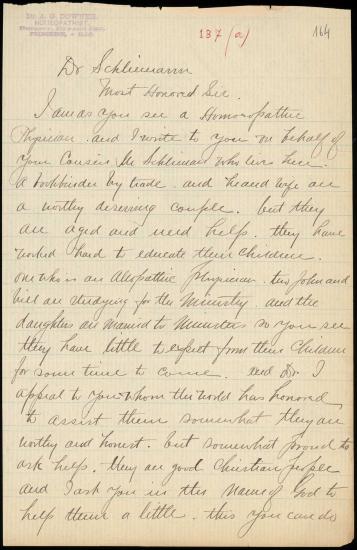 Dr. A. G. DOWNER,
HOMEOPATHIST,
PRINCETON,
137 (a)
164
Dr Schliemann
Most Honored Sir.
I am as you see a Homoeopathic
Physician. and I write to you on behalf of
your Cousin Mr Schlieman who lives here.
a bookbinder by trade. and he and wife are
a worthy deserving couple. but they
are aged and need help. they have
worked hard to educate their children.
one who is an Allopathic Physician. two John and
bill are studying for the Ministry and the
daughters are married to Ministers so you see
they have little to expect from their Children
for some time to come. and Dr. I
appeal to you whom the world has honored
to assist them somewhat they are
worthy and honest. but somewhat proud to
ask help. they are good Christian people
and I ask you in the name of God to
help them a little. this you can do